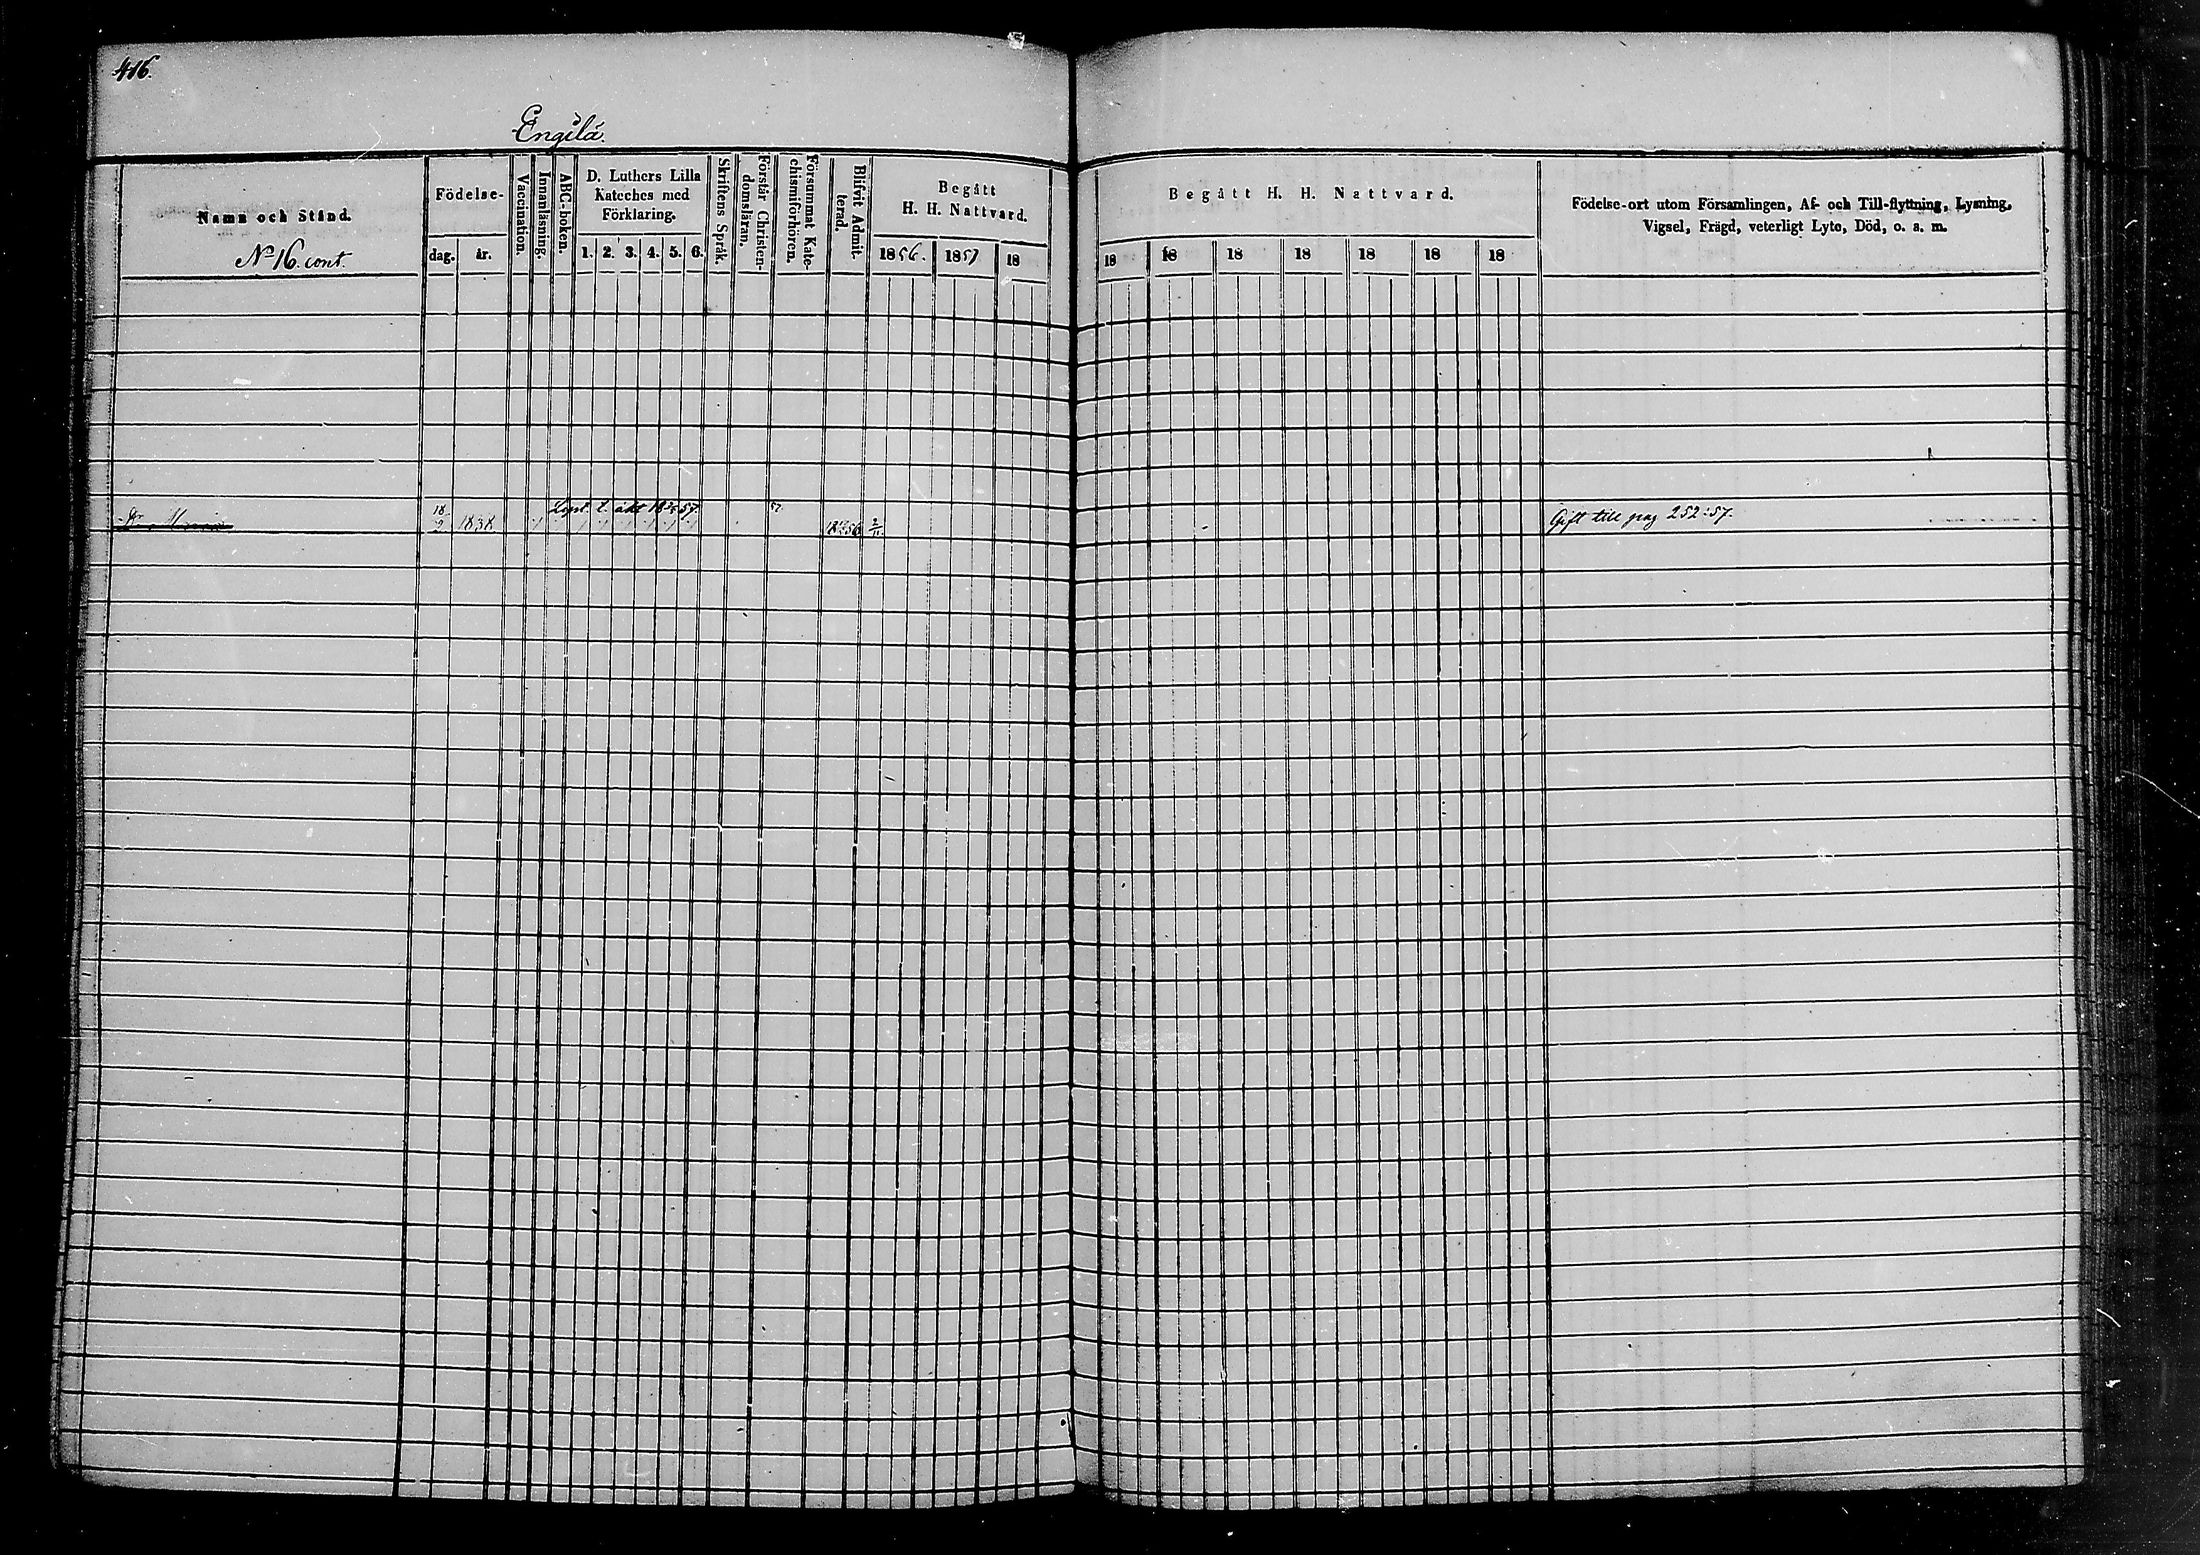 416.
Engilä.
Namn och Stånd.
No 16. cont.
Födelse-
dag. år.
Vaccination.
Innanläsning.
ABC-boken.
D. Luthers Lilla
Kateches med
Förklaring.
1. 2. 3. 4. 5. 6.
Skriftens Språk.
Förstår Christen-
domsläran.
Försummat Kate-
chismiförhören.
Blifvit Admit-
terad.
Begått
H. H. Nattvard.
1856. 1857 18
Begått H. H. Nattvard.
18 18 18 18 18 18 18
Födelse-ort utom Församlingen, Af- och Till-flyttning, Lysning,
Vigsel, Frägd, veterligt Lyte, Död, o. a. m.
Dr Maria 18/2 1838 Lyst t. äkt 57 57 1856 2/11 Gift till pag 252:57.